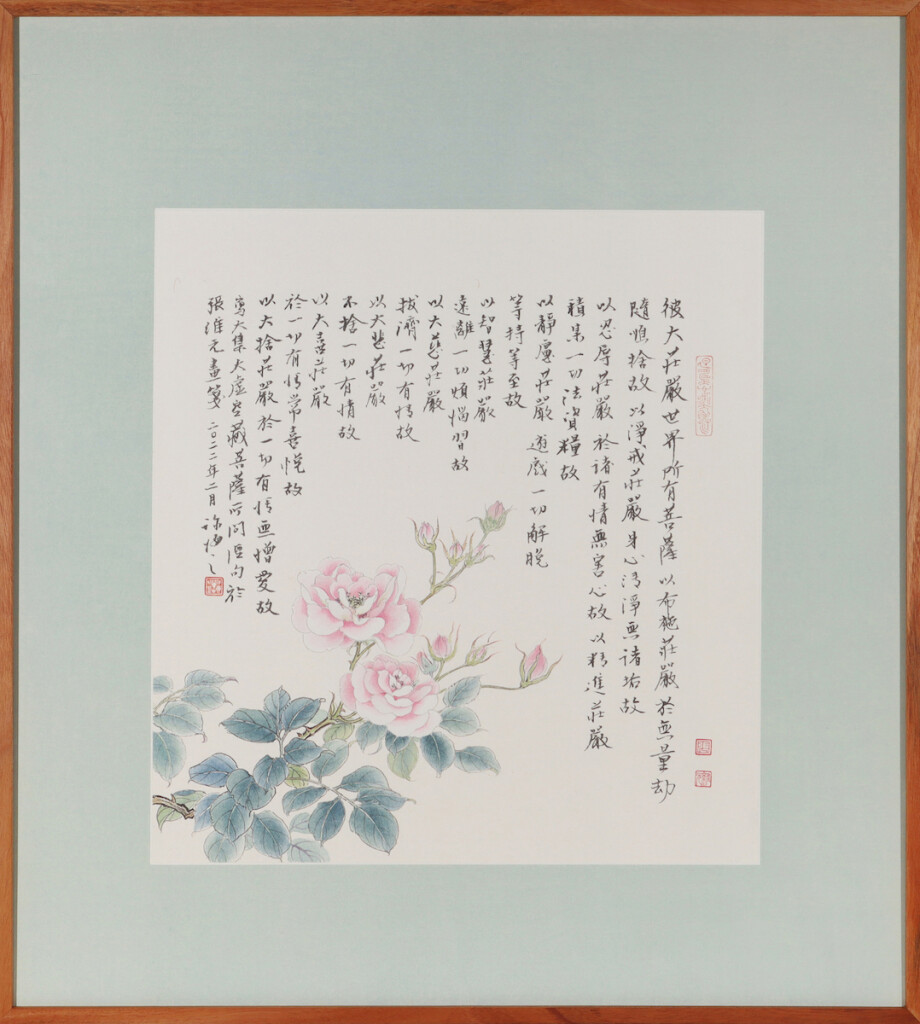 彼大莊嚴世界所有菩薩以布施莊嚴於無量劫
隨順捨故以淨戒莊嚴身心清淨無諸垢故
以忍辱莊嚴於諸有情無害心故以精進莊嚴
積集一切法資糧故
以靜慮莊嚴遊戲一切解脫
等持等至故
以智慧莊嚴
遠離一切煩惱習故
以大慈莊嚴
拔濟一切有情故
以大悲莊嚴
不捨一切有情故
以大喜莊嚴
於一切有情常喜悅故
以大捨莊嚴於一切有情無憎愛故
寫大集大虛空藏菩薩所問經句於
張維元畫箋二〇二二年二月